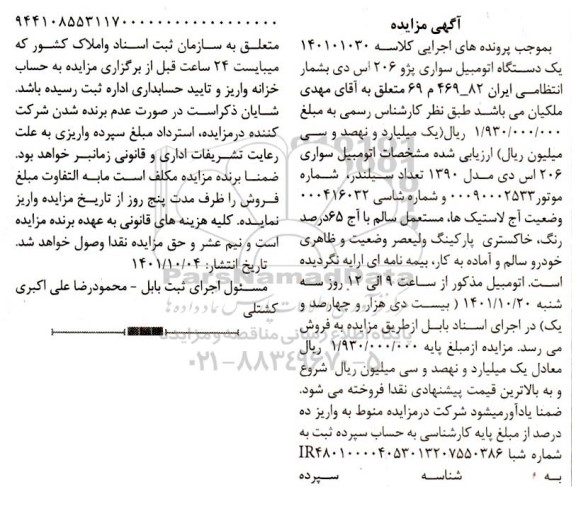 آگهی مزایده
بموجب پرونده های اجرایی کلاسه ۱۴۰۱۰۱۰۳۰
یک دستگاه اتومبیل سواری پژو ۲۰۶ اس دی بشمار
انتظامی ایران ۸۲_۴۶۹ م ۶۹ متعلق به آقای مهدی
ملکیان می باشد طبق نظر کارشناس رسمی به مبلغ
۱/۹۳۰/۰۰۰/۰۰۰ ریال(یک میلیارد و نهصد و سی
میلیون ریال) ارزیابی شده مشخصات اتومبیل سواری
۲۰۶ اس دی مدل ۱۳۹۰ تعداد سیلیندر، شماره
موتور۰۰۰۹۰۰۰۲۵۳۳ و شماره شاسی ۰۰۰۴۱۶۰۳۲
وضعیت آج لاستیک ها، مستعمل سالم با آج ۶۵درصد
رنگ، خاکستری پارکینگ ولیعصر وضعیت و ظاهری
خودرو سالم و آماده به کار، بیمه نامه ای ارایه نگردیده
است. اتومبیل مذکور از ساعت ۹ الی ۱۲ روز سه
شنبه ۱۴۰۱/۱۰/۲۰ ( بیست دی هزار و چهارصد و
یک) در اجرای اسناد بابل ازطریق مزایده به فروش
می رسد. مزایده ازمبلغ پایه ۱/۹۳۰/۰۰۰/۰۰۰ ریال
معادل یک میلیارد و نهصد و سی میلیون ریال شروع
و به بالاترین قیمت پیشنهادی نقدا فروخته می شود.
ضمنا یادآورمیشود شرکت درمزایده منوط به واریز ده
درصد از مبلغ پایه کارشناسی به حساب سپرده ثبت به
شماره شبا IR۴۸۰۱۰۰۰۰۴۰۵۳۰۱۳۲۰۷۵۵۰۳۸۶
به شناسه سپرده
۹۴۴۱۰۸۵۵۳۱۱۷۰۰۰۰۰۰۰۰۰۰۰۰۰۰۰۰۰۰
متعلق به سازمان ثبت اسناد واملاک کشور که
میبایست ۲۴ ساعت قبل از برگزاری مزایده به حساب
خزانه واریز و تایید حسابداری اداره ثبت رسیده باشد.
شایان ذکراست در صورت عدم برنده شدن شرکت
کننده درمزایده، استرداد مبلغ سپرده واریزی به علت
رعایت تشریفات اداری و قانونی زمانبر خواهد بود.
ضمنا برنده مزایده مکلف است مابه التفاوت مبلغ
فروش را ظرف مدت پنج روز از تاریخ مزایده واریز
نماینده. کلیه هزینه های قانونی به عهده برنده مزایده
است و نیم عشر و حق مزایده نقدا وصول خواهد شد.
تاریخ انتشار: ۱۴۰۱/۱۰/۰۴
مسئول اجرای ثبت بابل - محمودرضا علی اکبری
کشتلی
ParsNamadData
پایگاه اطلاع رسانی مناقصه و مزایده
۰۲۱-۸۸۳۴۹۶۷۰-۵